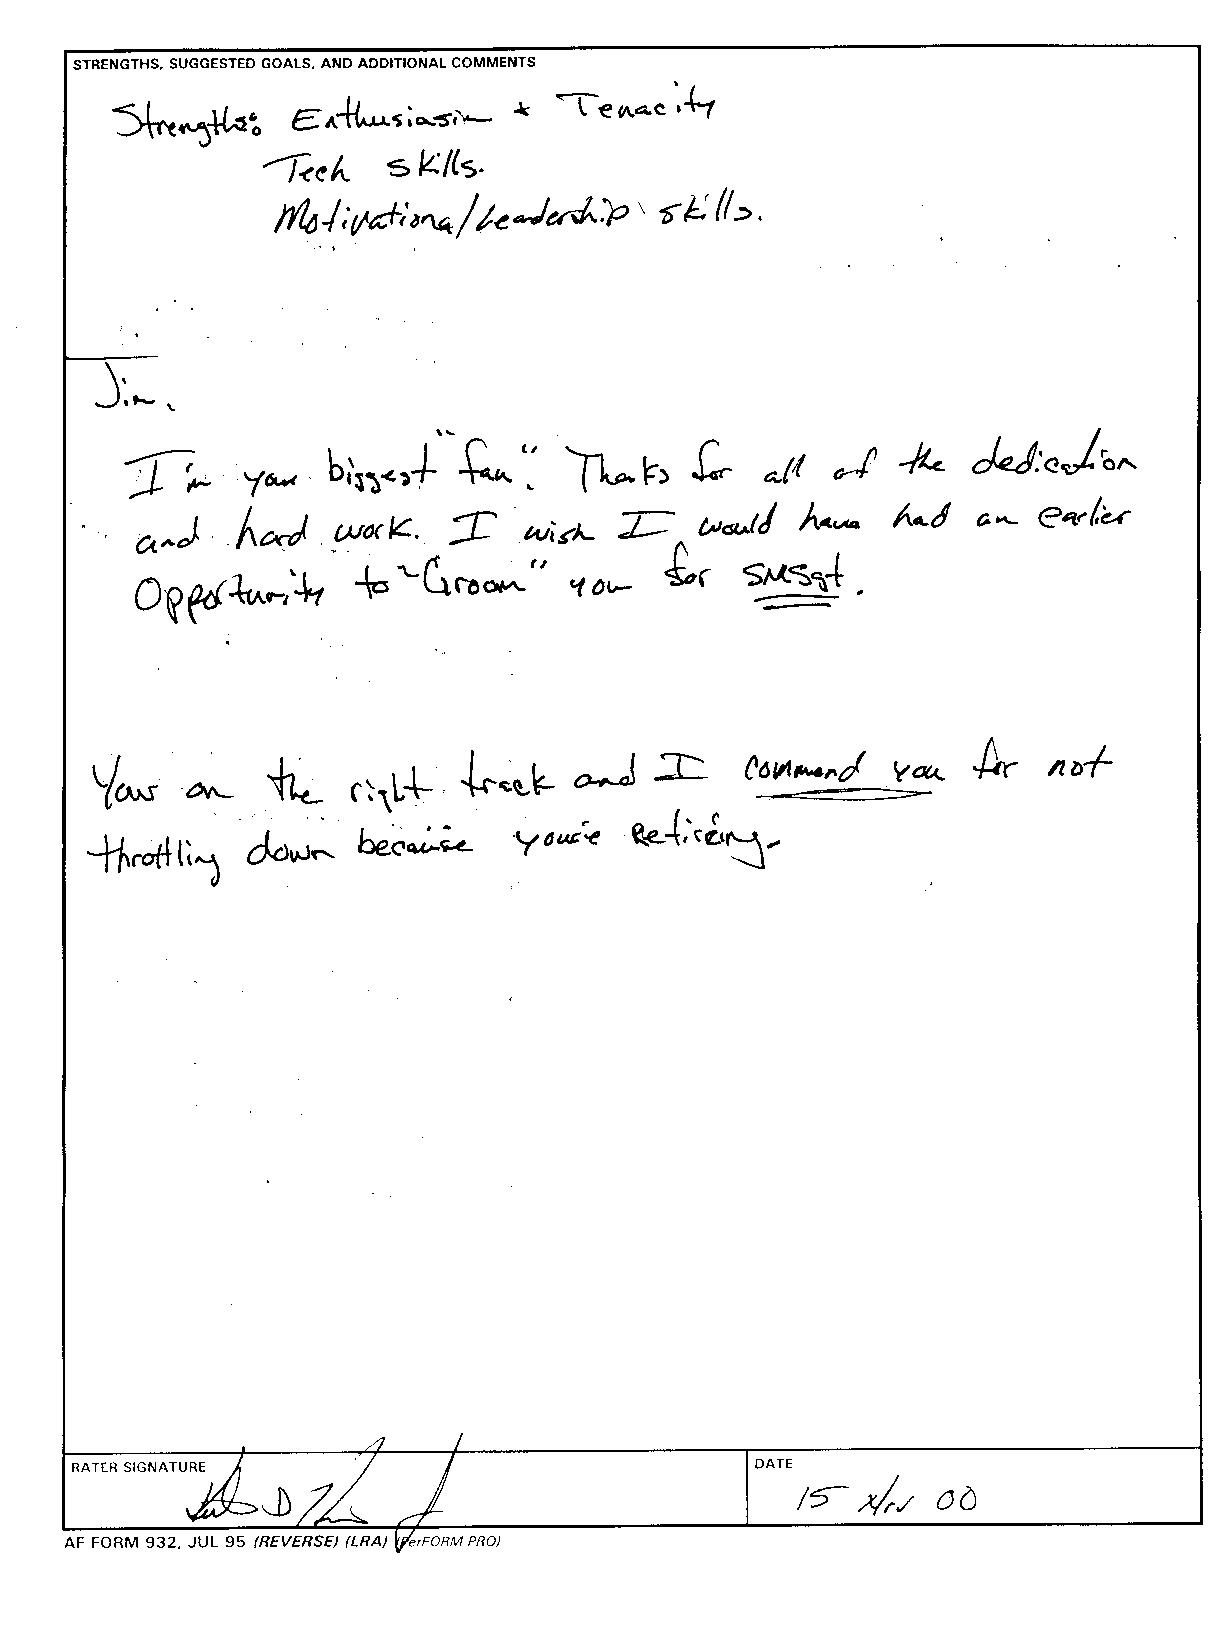 STRENGTHS, SUGGESTED GOALS, AND ADDITIONAL COMMENTS
Strengths: Enthusiasim + Tenacity
Tech skills.
Motivationa/Leadership skills.
Jim,
I'm your biggest "fan". Thanks for all of the dedication
and hard work. I wish I would have had an earlier
Opportunity to "Groom" you for SMSgt.
Your on the right track and I commend you for not
throttling down because you're Retireing.
RATER SIGNATURE
DATE
15 Nov 00
AF FORM 932, JUL 95 (REVERSE) (LRA) (PerFORM PRO)